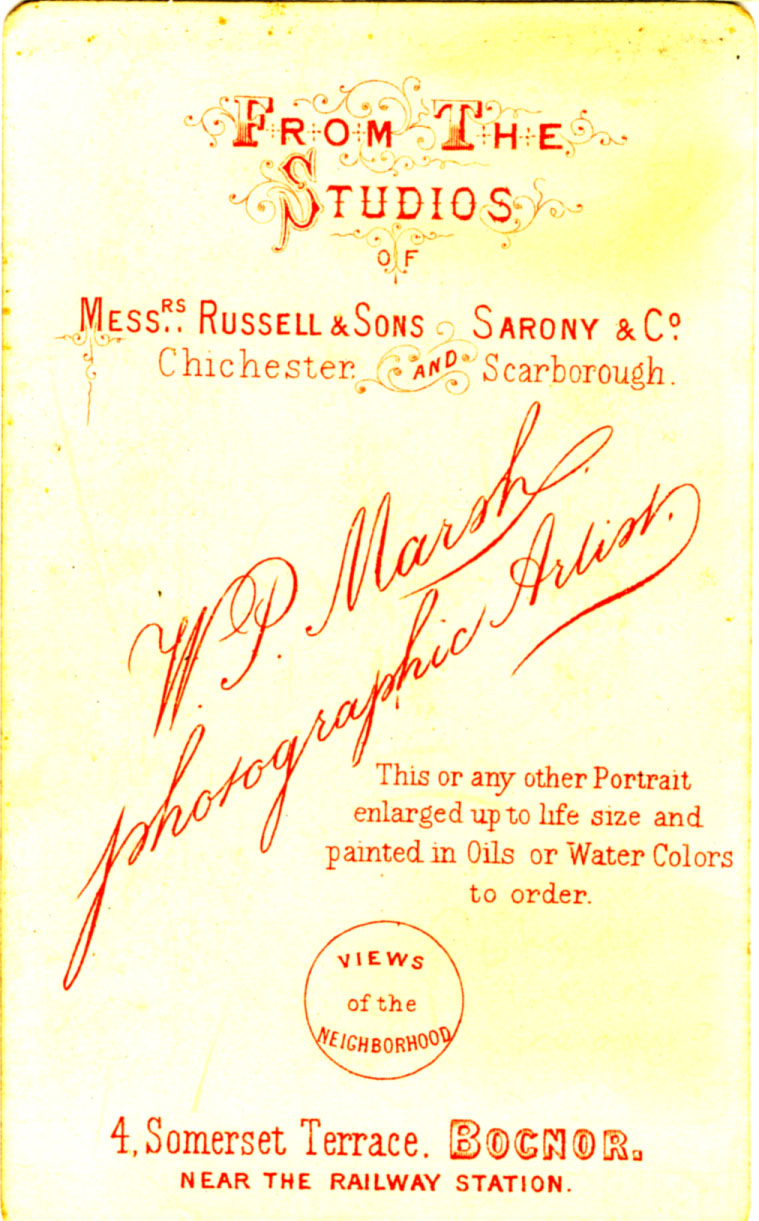 FROM THE
STUDIOS
OF
MESSRS. RUSSELL & SONS SARONY & Co.
Chichester. AND Scarborough.
W. P. Marsh.
photographic Artist.
This or any other Portrait
enlarged up to life size and
painted in Oils or Water Colors
to order.
VIEWS
of the
NEIGHBORHOOD
4, Somerset Terrace. BOGNOR.
NEAR THE RAILWAY STATION.